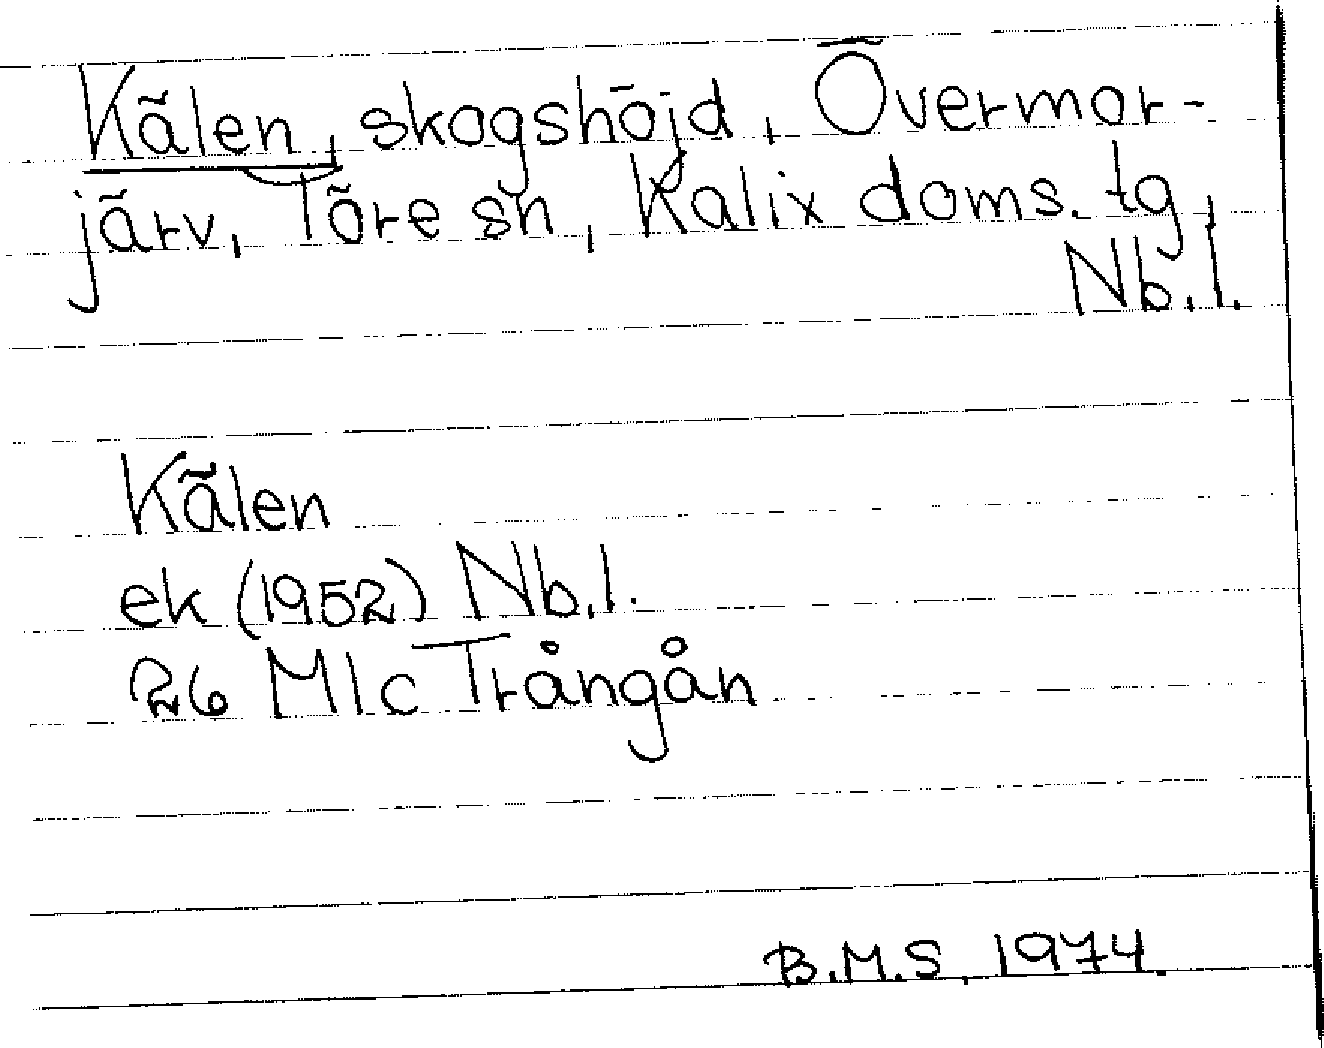 Kälen, skogshöjd, Övermor-
järv, Töre sn, Kalix doms. tg,
Nb.l.
Kälen
ek (1952) Nb.l.
26 Mlc Trångån
B.M.S, 1974.